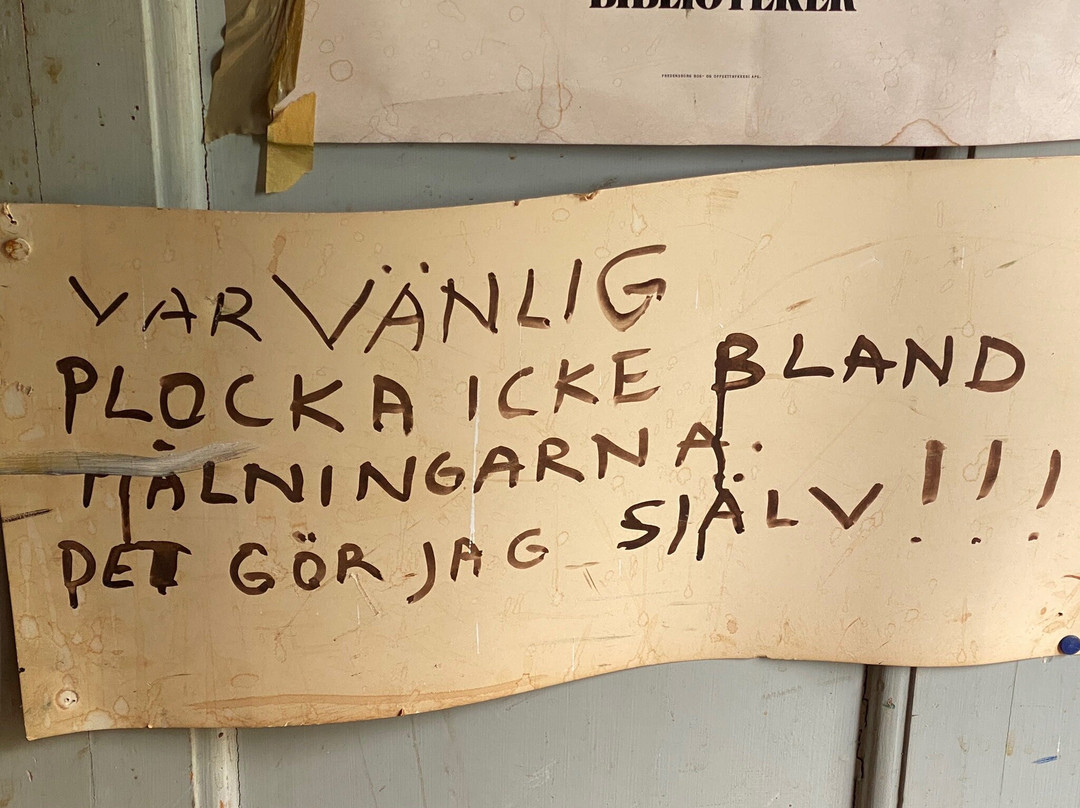 BIBLIOTEKER
VAR VÄNLIG
PLOCKA ICKE BLAND
MÅLNINGARNA.
DET GÖR JAG SJÄLV !!!